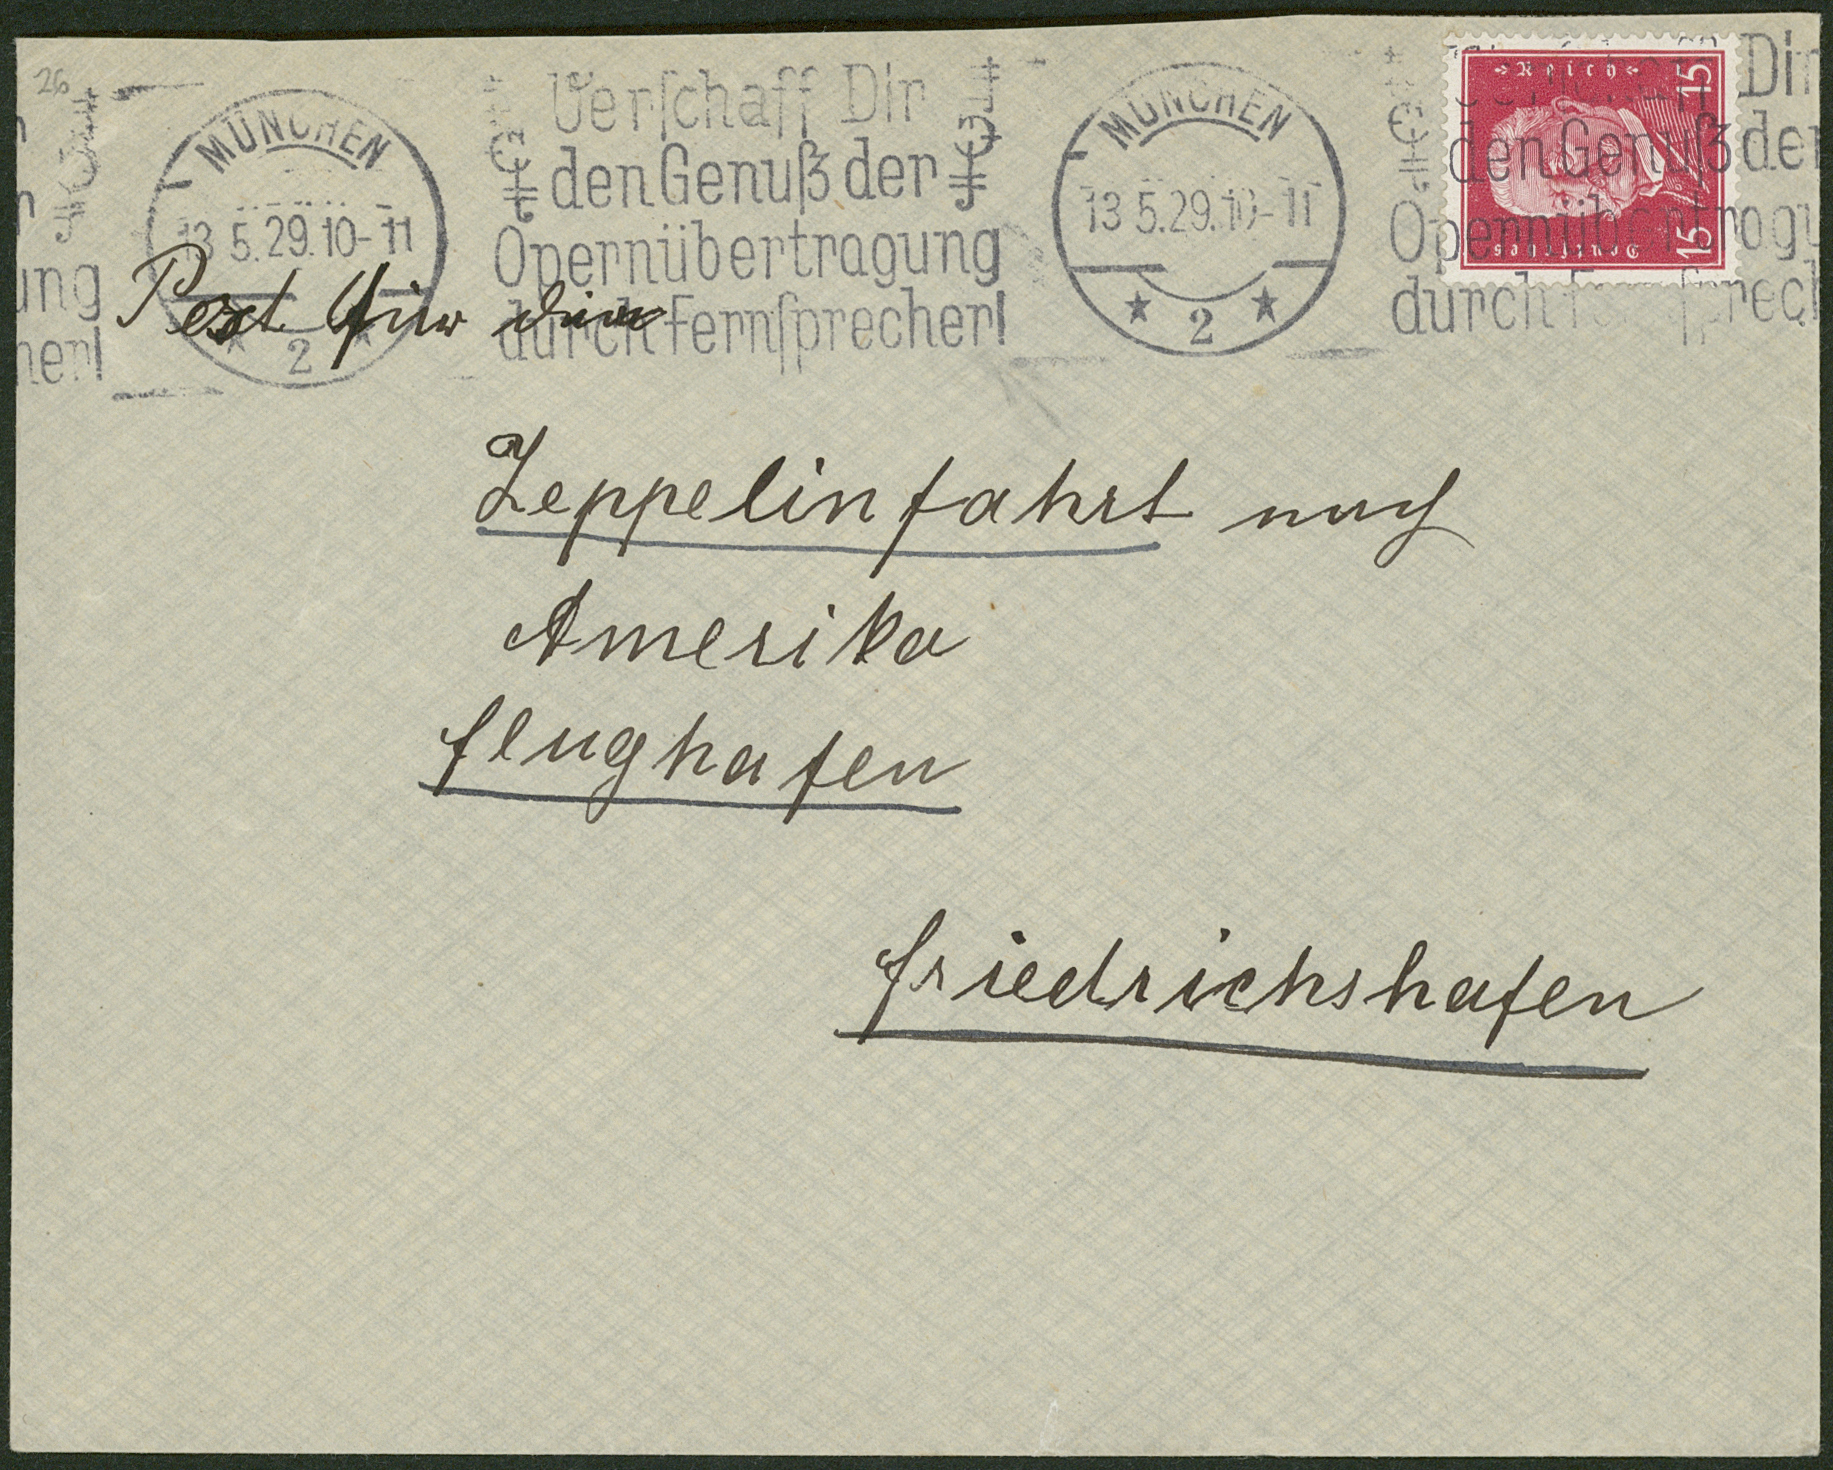 26
MÜNCHEN
13.5.29.10-11
2
Verschaff Dir
den Genuß der
Opernübertragung
durch Fernsprecher!
MÜNCHEN
13.5.29.10-11
2
Dir
den Genuß der
Opernübertragu
durch F sprech
Reich
15
15
Deutsches
ung
her!
Post für die
Zeppelinfahrt nach
Amerika
Flughafen
Friedrichshafen